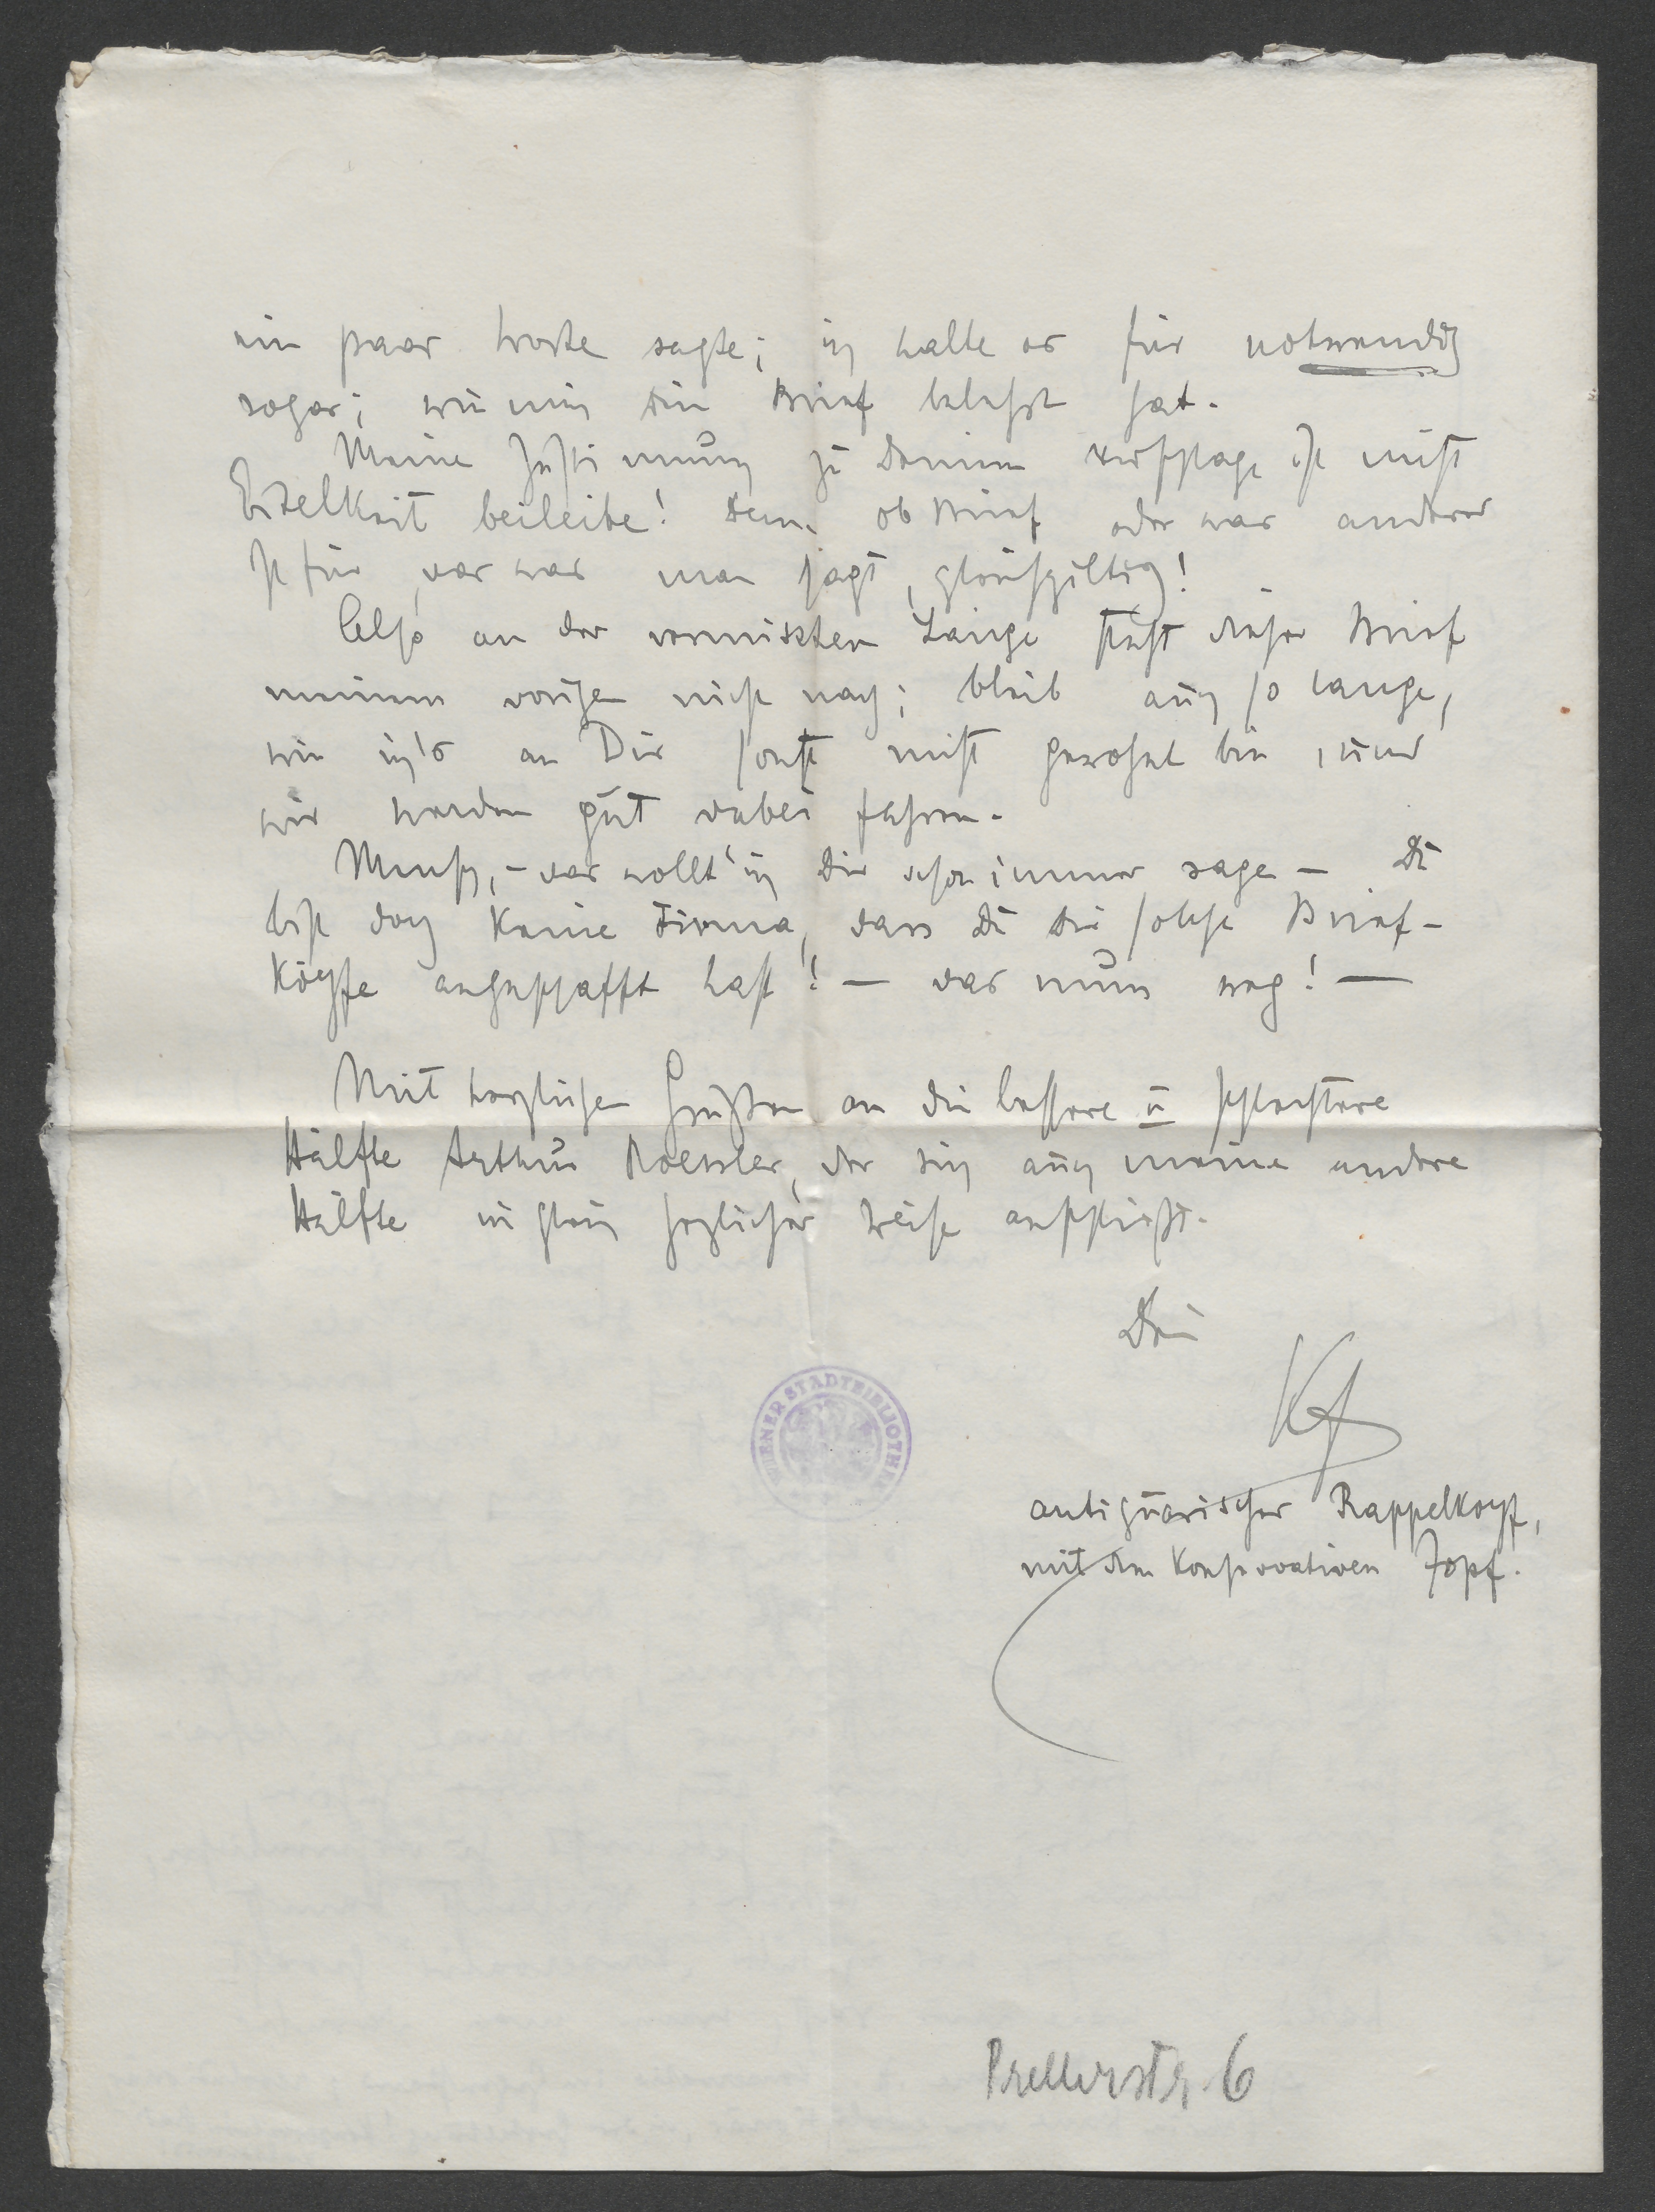 ein paar Worte sagte; ich halte es für notwendig
sogar; wie mich Dein Brief belehrt hat.
Meine Zustimmung zu Deinem Vorschlage ist nicht
Eitelkeit beileibe! Denn ob Brief oder was anderes
ist für das was man sagt, gleichgiltig!
Also an der vermissten Länge steht dieser Brief
meinem vorigen nicht nach; bleib auch so lange,
wie ich's an Dir sonst nicht gewohnt bin, und
wir werden gut dabei fahren.
Mensch, – das wollt' ich Dir schon immer sagen – Du
bist doch keine Firma, dass Du Dir solche Brief-
köpfe angeschafft hast! – das muss weg! –
Mit herzlichen Grüßen an die bessere u schlechtere
Hälfte Arthur Roessler, der sich auch meine andere
Hälfte in gleich herzlicher Weise anschließt.
Dein
antiquarischer Rappelkopf,
mit dem konservativen Zopf.
WIENER STADTBIBLIOTHEK
Prellerstr. 6